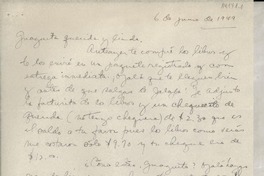 6 de junio de 1949
Juanuita querida y linda:
Anteayer te compré los libros y
te los envié en un paquete registrado y con
entrega inmediata. Ojalá que te lleguen bien
y antes de que salgas de Jalapa. Te adjunto
la facturita de los libros y un cheque
de $2.30 que es
el saldo a tu favor pues los libros como verás
me costaron sólo $9.70 y tu cheque era de
$12.00.
¿Cómo estás, Juanuita? Ojalá hayas